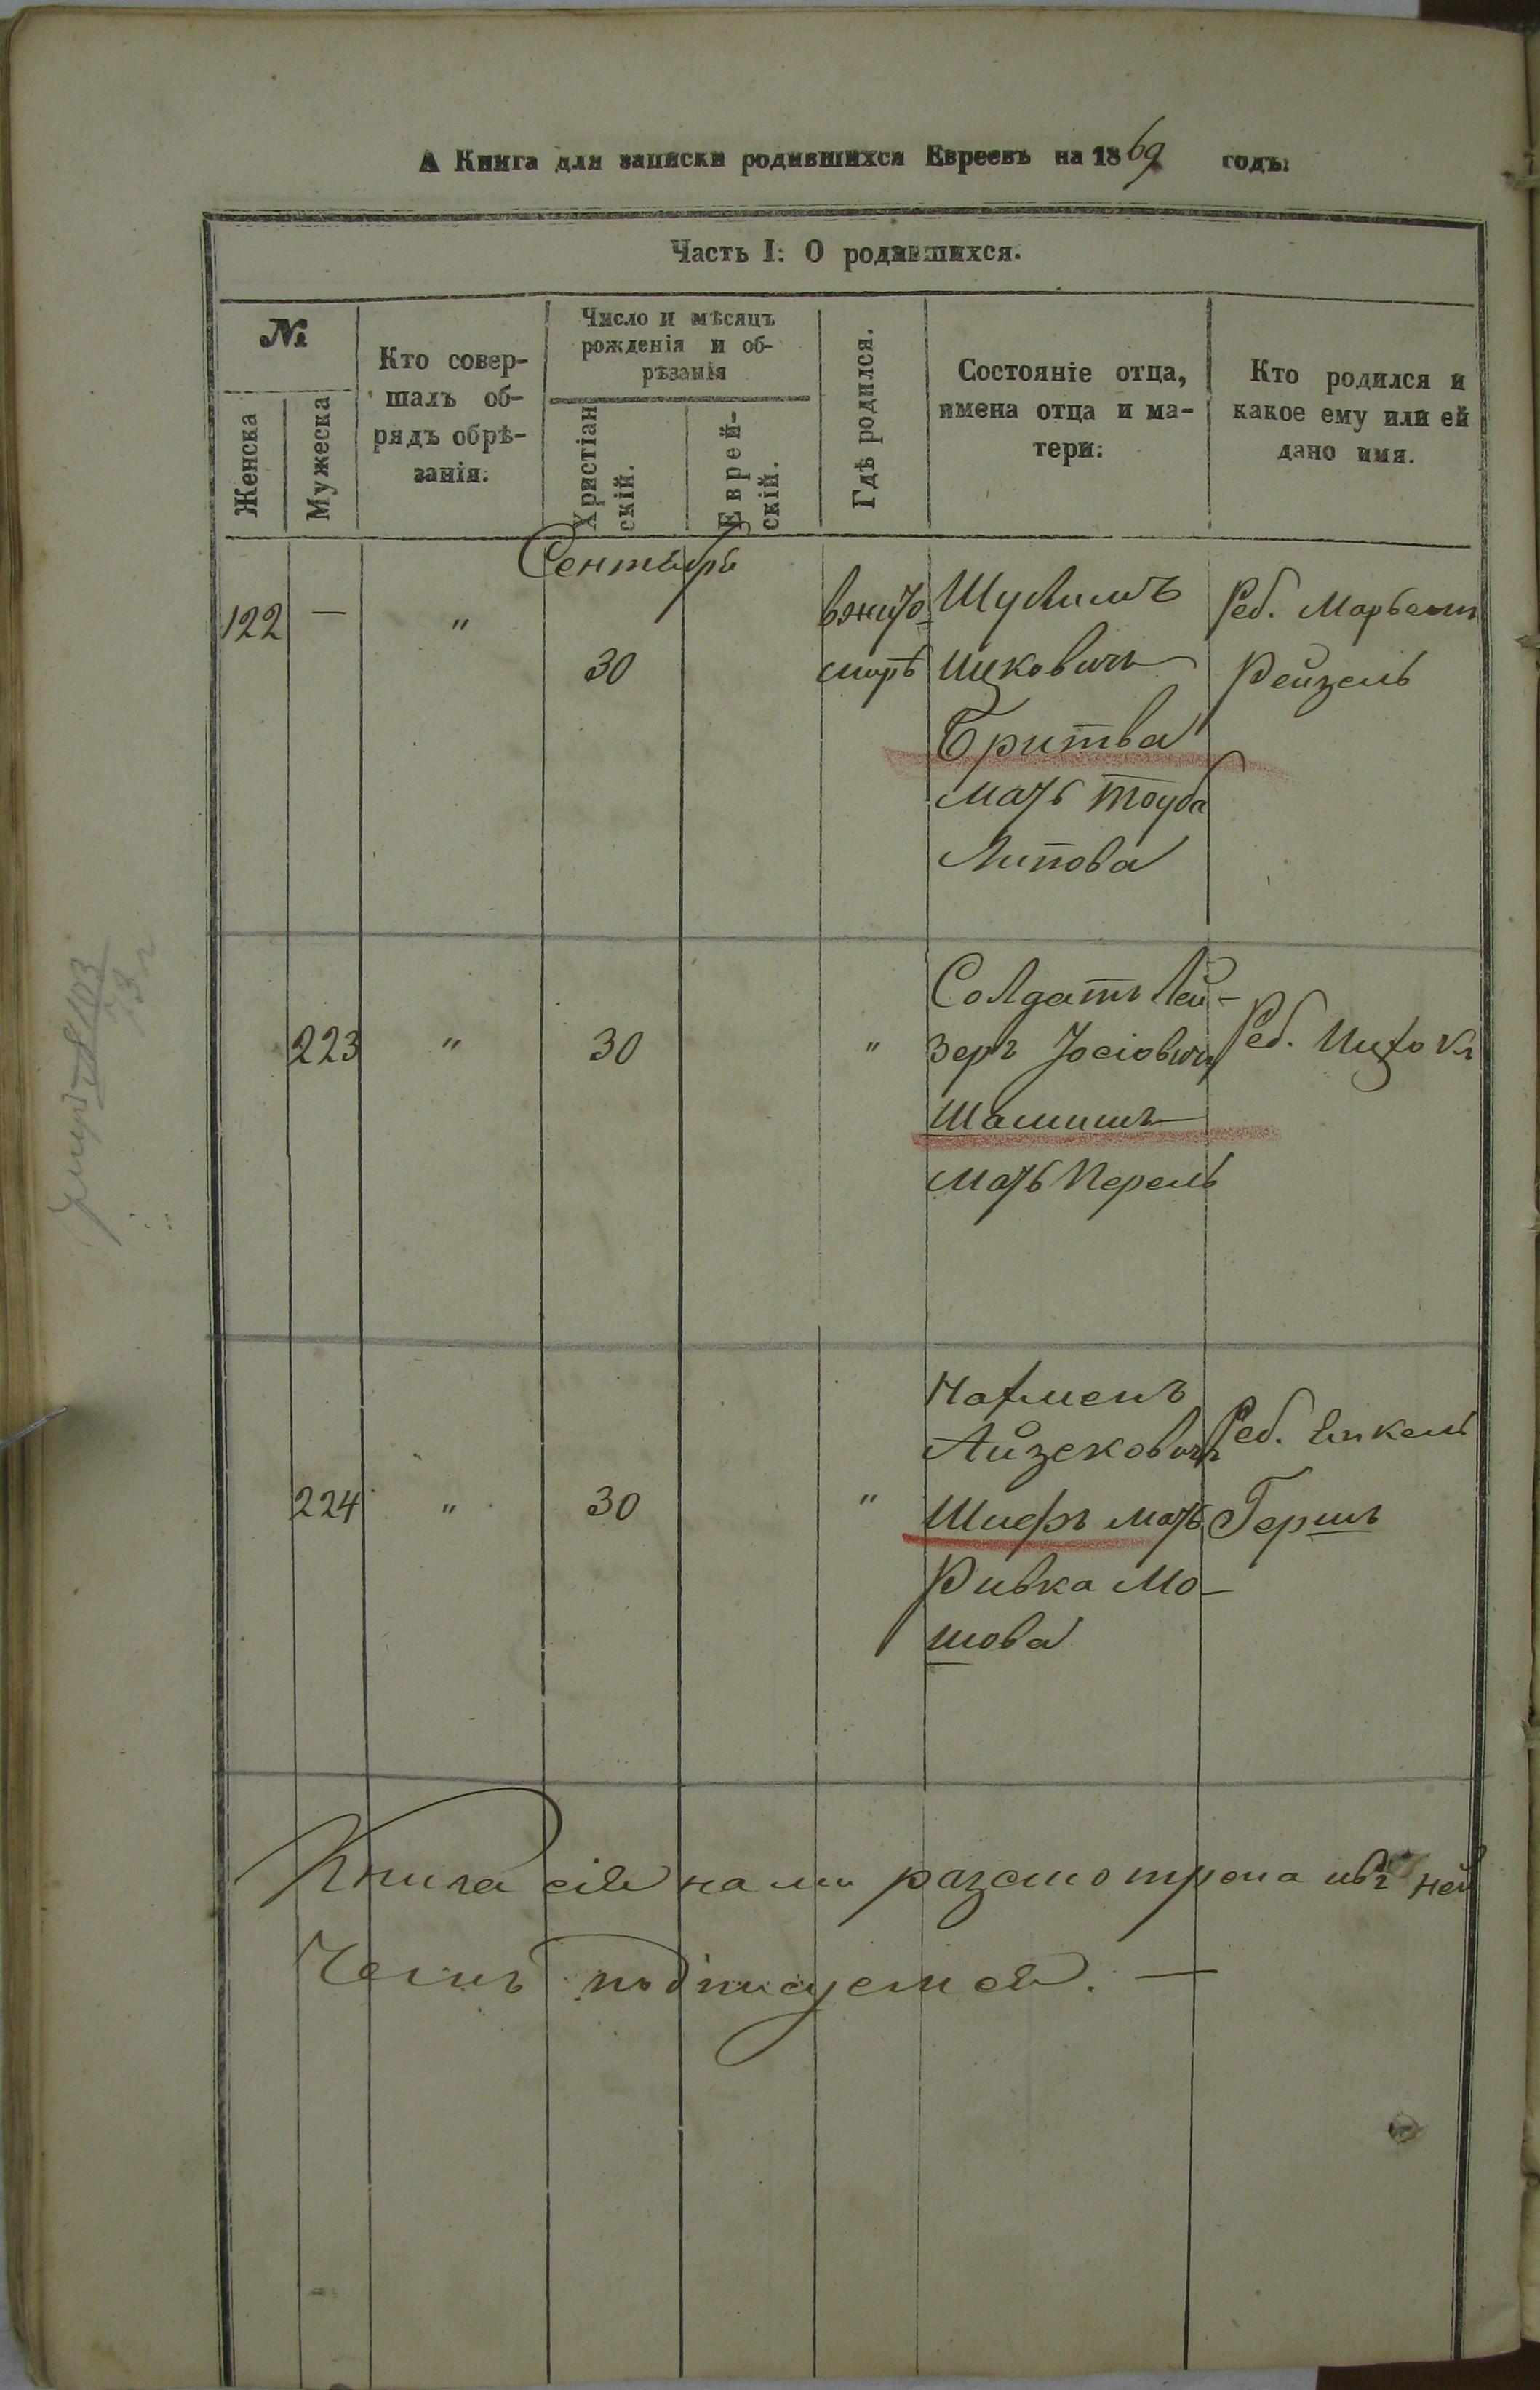 А Книга для записки родившихся Евреевъ на 1869 годъ:
Часть I: О родившихся.
№
Женска
Мужеска
Кто совер-
шалъ об-
рядъ обрѣ-
занія.
Число и мѣсяцъ
рожденія и об-
рѣзанія
Христіан
скій.
Еврей-
скій.
Гдѣ родился.
Состояніе отца,
имена отца и ма-
тери:
Кто родился и
какое ему или ей
дано имя.
Сентября
122 — "
30
вжито-
мирѣ
Шулимъ
Ицковичъ
Бритва
мать Тоуба
Липова
Реб.
Рейзель
223 " 30 "
Солдатъ Лей-
зеръ Іосіовичъ
Шамишъ
мать Перель
Реб. Ицхокъ
224 " 30 "
Нахменъ
Айзековичъ
Шифъ мать
Ривка Мо-
шова
Реб. Янкель
Гершъ
Книга сія нами разсмотрена ивъ ней
подписуемся. —
умер
103
73 г